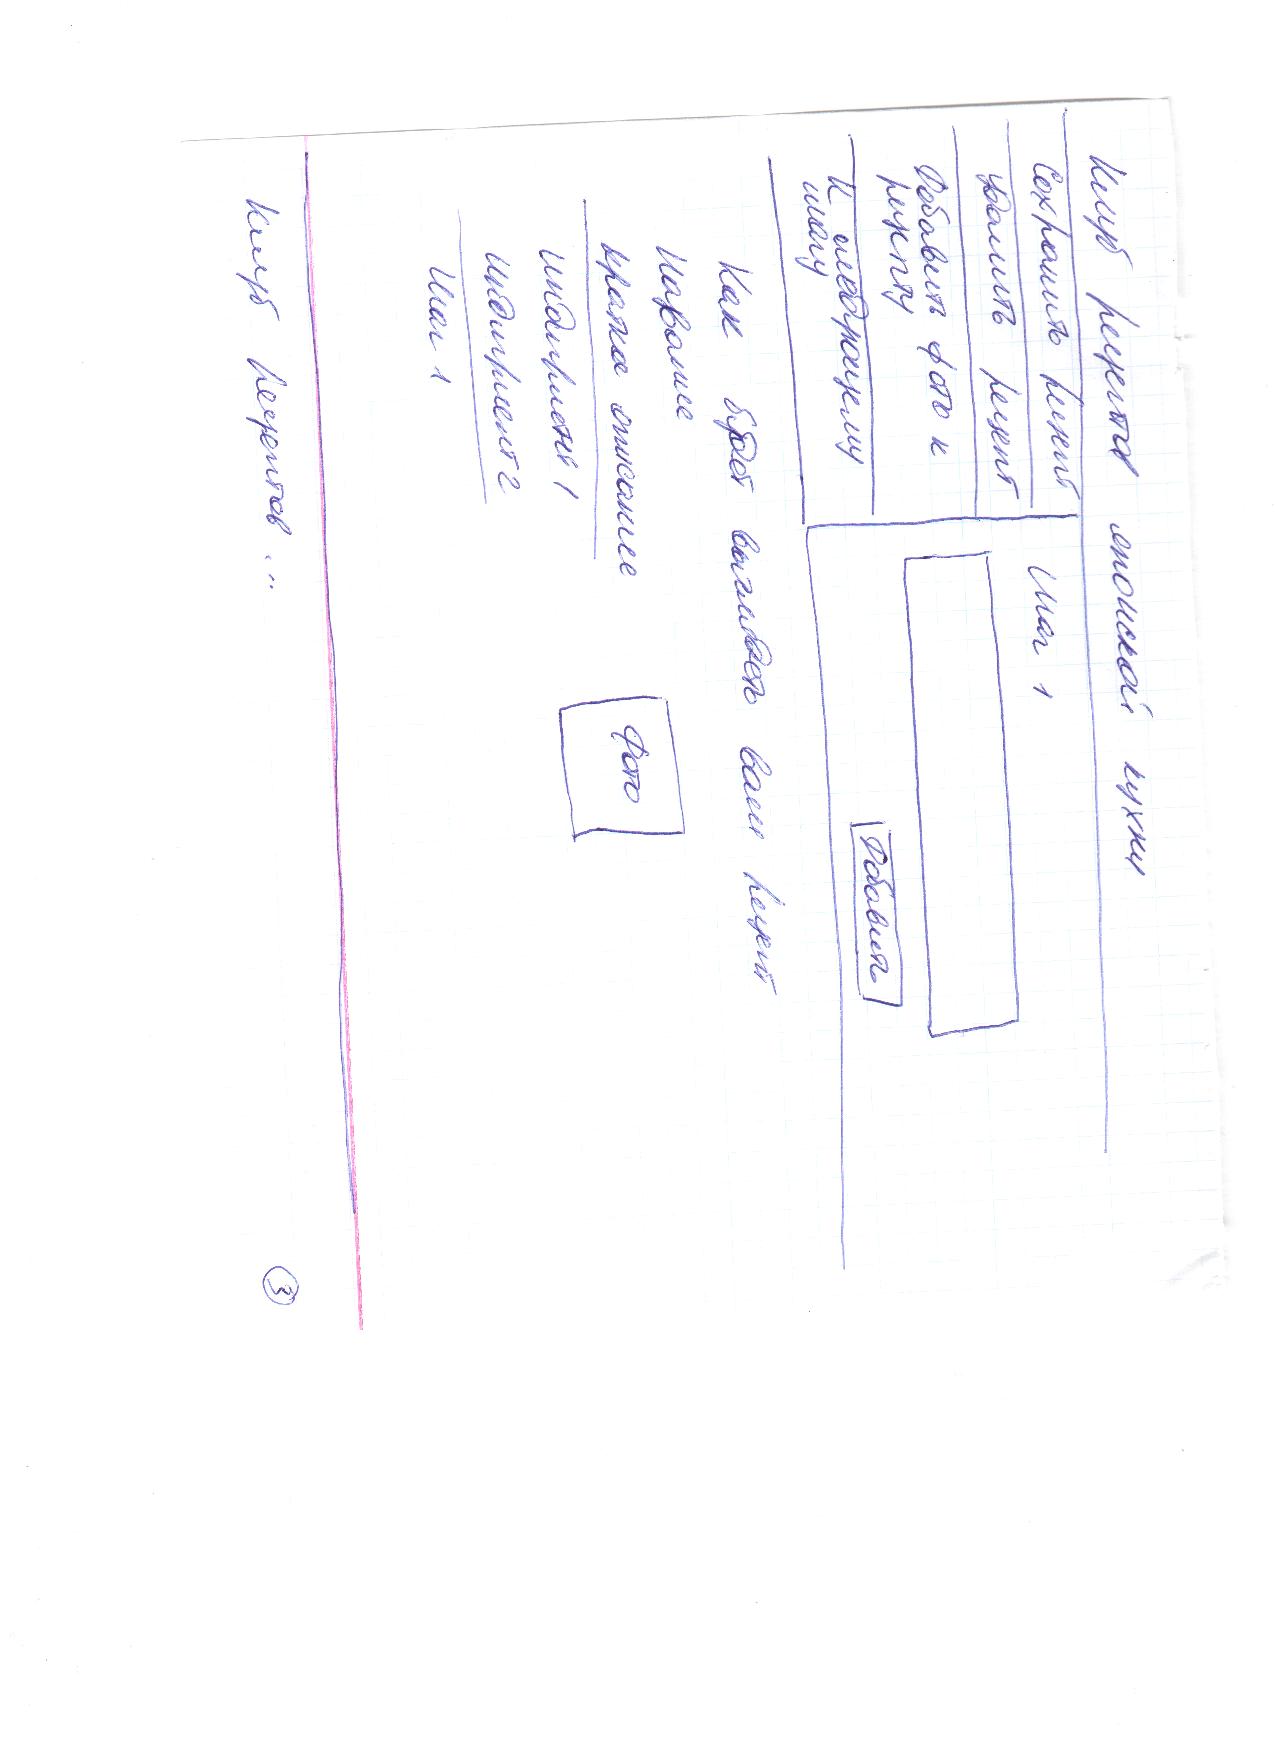 Клуб рецептов японской кухни
Сохранить рецепт
Удалить рецепт
Добавить фото к
рецепту
К следующему
шагу
Шаг 1
Добавить
Как будет выглядеть ваш рецепт
Название
Краткое описание
Ингредиент 1
Ингредиент 2
Шаг 1
Фото
Клуб Рецептов...
3